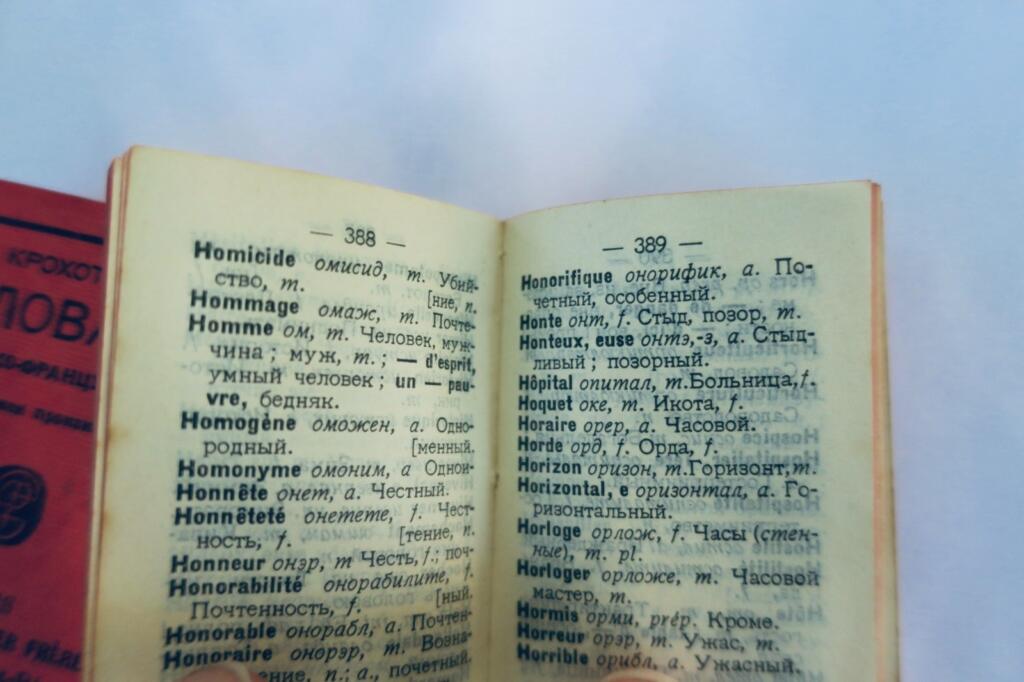 КРОХОТ
ЛОВА
— 388 —
Homicide омисид, m. Убий-
ство, m. [ние, n.
Hommage омаж, m. Почте-
Homme ом, m. Человек, муж-
чина; муж, m.; — d'esprit,
умный человек; un — pau-
vre, бедняк.
Homogène оможен, a. Одно-
родный. [менный.
Homonyme омоним, a Однои-
Honnête онет, a. Честный.
Honnêteté онетете, f. Чест-
ность, f. [тение, n.
Honneur онэр, m Честь, f.; поч-
Honorabilité онорабилите, f.
Почтенность, f. [ный.
Honorable онорабл, a. Почтен-
Honoraire онорэр, m. Возна-
ение, n.; a., почетный.
— 389 —
Honorifique онорифик, a. По-
четный, особенный.
Honte онт, f. Стыд, позор, m.
Honteux, euse онтэ,-з, a. Стыд-
ливый; позорный.
Hôpital опитал, m.Больница,f.
Hoquet оке, m. Икота, f.
Horaire орер, a. Часовой.
Horde орд, f. Орда, f.
Horizon оризон, m.Горизонт,m.
Horizontal, e оризонтал, a. Го-
ризонтальный.
Horloge орлож, f. Часы (стен-
ные), m. pl.
Horloger орложе, m. Часовой
мастер, m.
Hormis орми, prép. Кроме.
Horreur орэр, m. Ужас, m.
Horrible орибл, a. Ужасный.